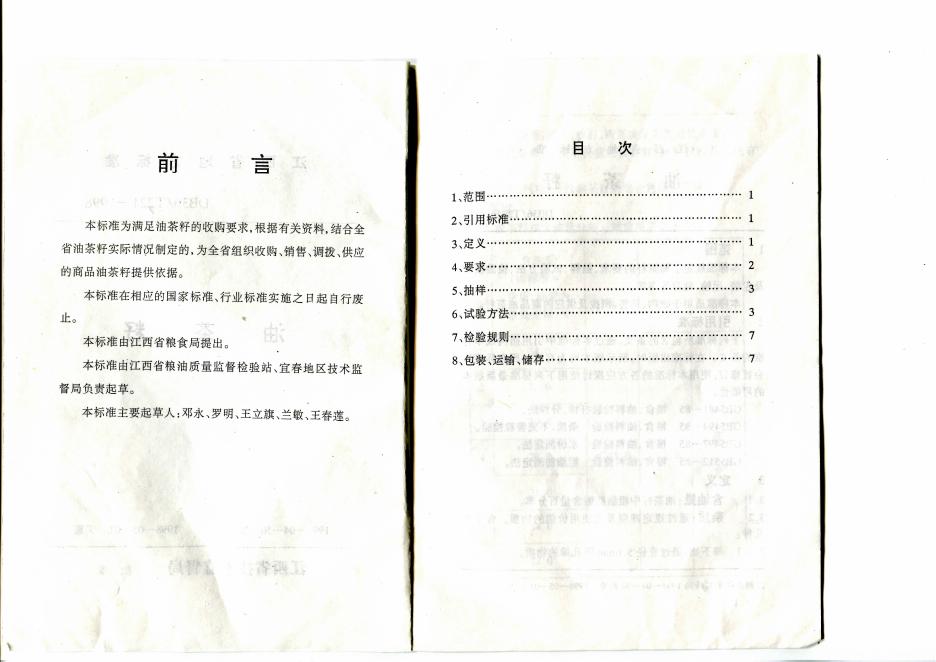 前 言
本标准为满足油茶籽的收购要求,根据有关资料,结合全
省油茶籽实际情况制定的,为全省组织收购、销售、调拨、供应
的商品油茶籽提供依据。
本标准在相应的国家标准、行业标准实施之日起自行废
止。
本标准由江西省粮食局提出。
本标准由江西省粮油质量监督检验站、宜春地区技术监
督局负责起草。
本标准主要起草人:邓永、罗明、王立旗、兰敏、王春莲。
目 次
1、范围…………………………………………………… 1
2、引用标准……………………………………………… 1
3、定义…………………………………………………… 1
4、要求…………………………………………………… 2
5、抽样…………………………………………………… 3
6、试验方法……………………………………………… 3
7、检验规则……………………………………………… 7
8、包装、运输、储存……………………………………… 7